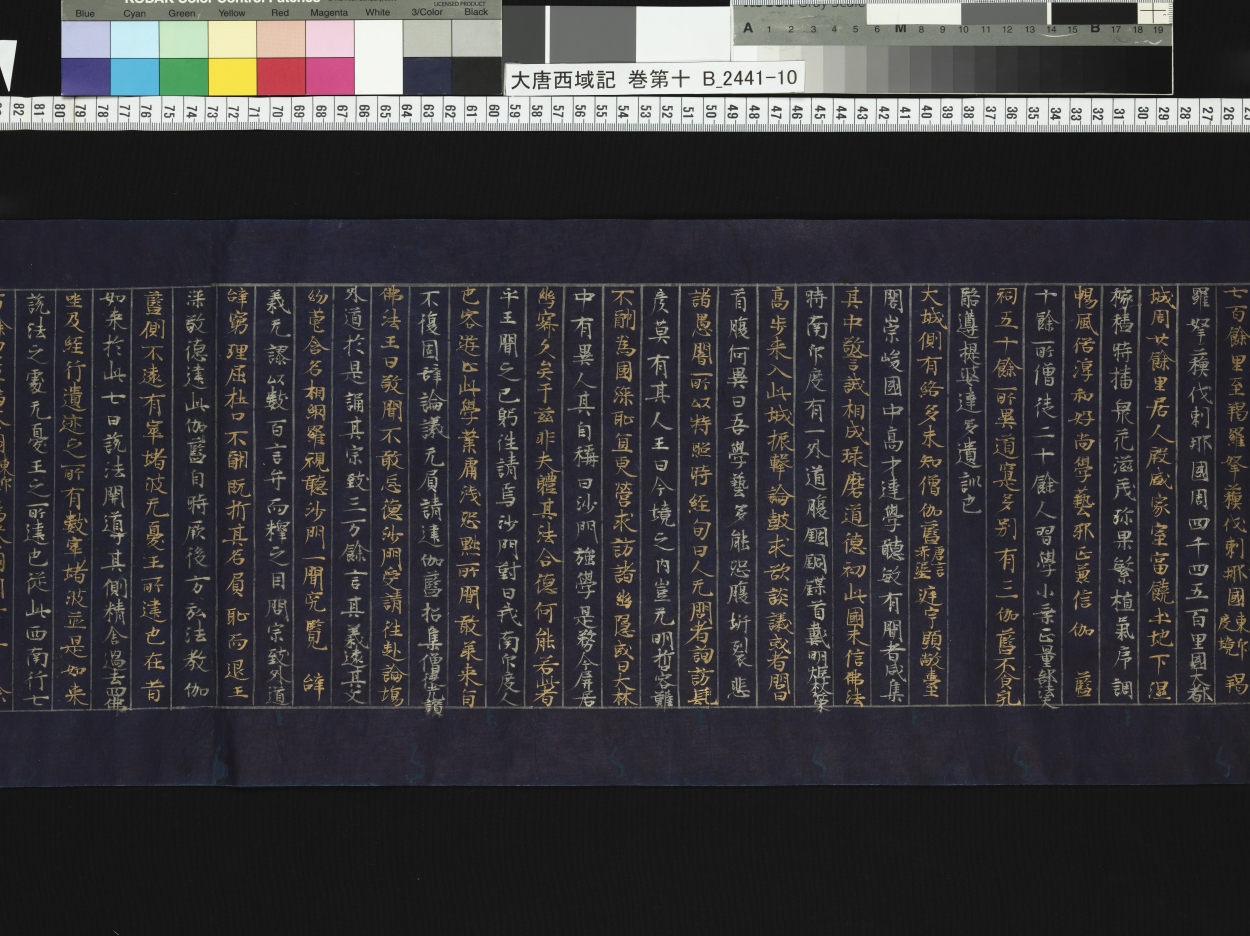 KODAK Color Control Patches
LICENSED PRODUCT
Blue Cyan Green Yellow Red Magenta White 3/Color Black
A 1 2 3 4 5 6 M 8 9 10 11 12 13 14 15 B 17 18 19
大唐西域記 巻第十 B_2441-10
82 81 80 79 78 77 76 75 74 73 72 71 70 69 68 67 66 65 64 63 62 61 60 59 58 57 56 55 54 53 52 51 50 49 48 47 46 45 44 43 42 41 40 39 38 37 36 35 34 33 32 31 30 29 28 27 26
七百餘里至羯羅拏蘓伐剌耶國 羯
羅拏蘓伐剌耶國周四千四五百里國大都
城周廿餘里居人殷盛家室富饒土地下濕
稼穡時播衆花滋茂珎果繁植氣序調
暢風俗淳和好尚學藝邪正兼信伽 藍
十餘所僧徒二十餘人習學小乗正量部法
祠五十餘所異道寔多別有三伽藍不食乳
酪遵提婆達多遺訓也
大城側有絡多末知僧伽藍唐言赤埿庭宇顯敞臺
閣崇峻國中高才達學聽敏有聞者咸集
其中警誡相成琢磨道德初此國未信佛法
時南印度有一外道腹錮銅鍱首戴明炬杖策
高步来入此城振擊論鼓求欲談議或者問曰
首腹何異曰吾學藝多能恐腹坼裂悲
諸愚闇所以持照時經旬日人无問者詢訪髦
彦莫有其人王曰今境之内豈无明哲客難
不酬為國深恥宜更營求訪諸幽隱或曰大林
中有異人其自稱曰沙門強學是務今屏居
幽寂久矣于兹非夫體其法合德何能若此者
乎王聞之已躬往請焉沙門對曰我南印度人
也客遊止此學業膚淺恐黜所聞敢承来旨
不復固辞論議无負請建伽藍招集僧徒光讚
佛法王曰敬聞不敢忘德沙門受請往赴論場
外道於是誦其宗致三万餘言其義遠其文
約苞含名相網羅視聽沙門一聞究覽 辞
義无謬以數百言弁而釋之目問宗致外道
辞窮理屈杜口不酬既折其名負恥而退王
深敬德建此伽藍自時厥後方弘法教 伽
藍側不遠有窣堵波无憂王所建也在昔
如来於此七日說法開導其側精舍過去四佛
坐及經行遺迹之所有數窣堵波並是如来
說法之處无憂王之所建也従此西南行七